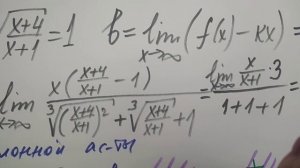 √((x+4)/(x+1)) = 1   b = lim_{x→∞} (f(x) − kx) =
lim_{x→∞} (x((x+4)/(x+1) − 1)) / (∛(((x+4)/(x+1))²) + ∛((x+4)/(x+1)) + 1) = (lim_{x→∞} x/(x+1) · 3) / (1+1+1) =
лонной ас-ты